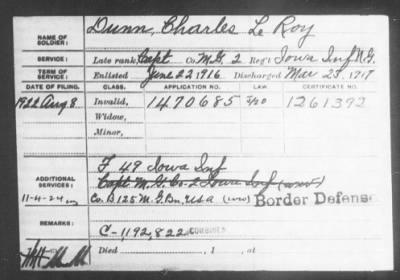 NAME OF SOLDIER: Dunn, Charles Le Roy
SERVICE: Late rank, Capt Co. M.G. 2 Reg't Iowa Inf N.G.
TERM OF SERVICE: Enlisted June 22 1916 Discharged Mar 23, 1917
DATE OF FILING. CLASS. APPLICATION NO. LAW. CERTIFICATE NO.
1922 Aug 8 Invalid, 1470685 1261392
Widow,
Minor,
F 49 Iowa Inf
ADDITIONAL SERVICES: Capt. M. G. Co. 2 Iowa Inf (WW)
11-4-24 Co. B 125 M.G. Bn, USA (WW) Border Defense
REMARKS: C-1,192,822 COMBINED
Died , 1 , at